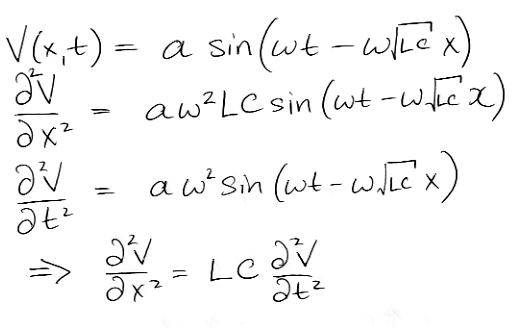 V(x,t) = a sin(ωt − ω√LC x)
∂²V/∂x² = aω²LC sin(ωt − ω√LC x)
∂²V/∂t² = aω² sin(ωt − ω√LC x)
⇒ ∂²V/∂x² = LC ∂²V/∂t²